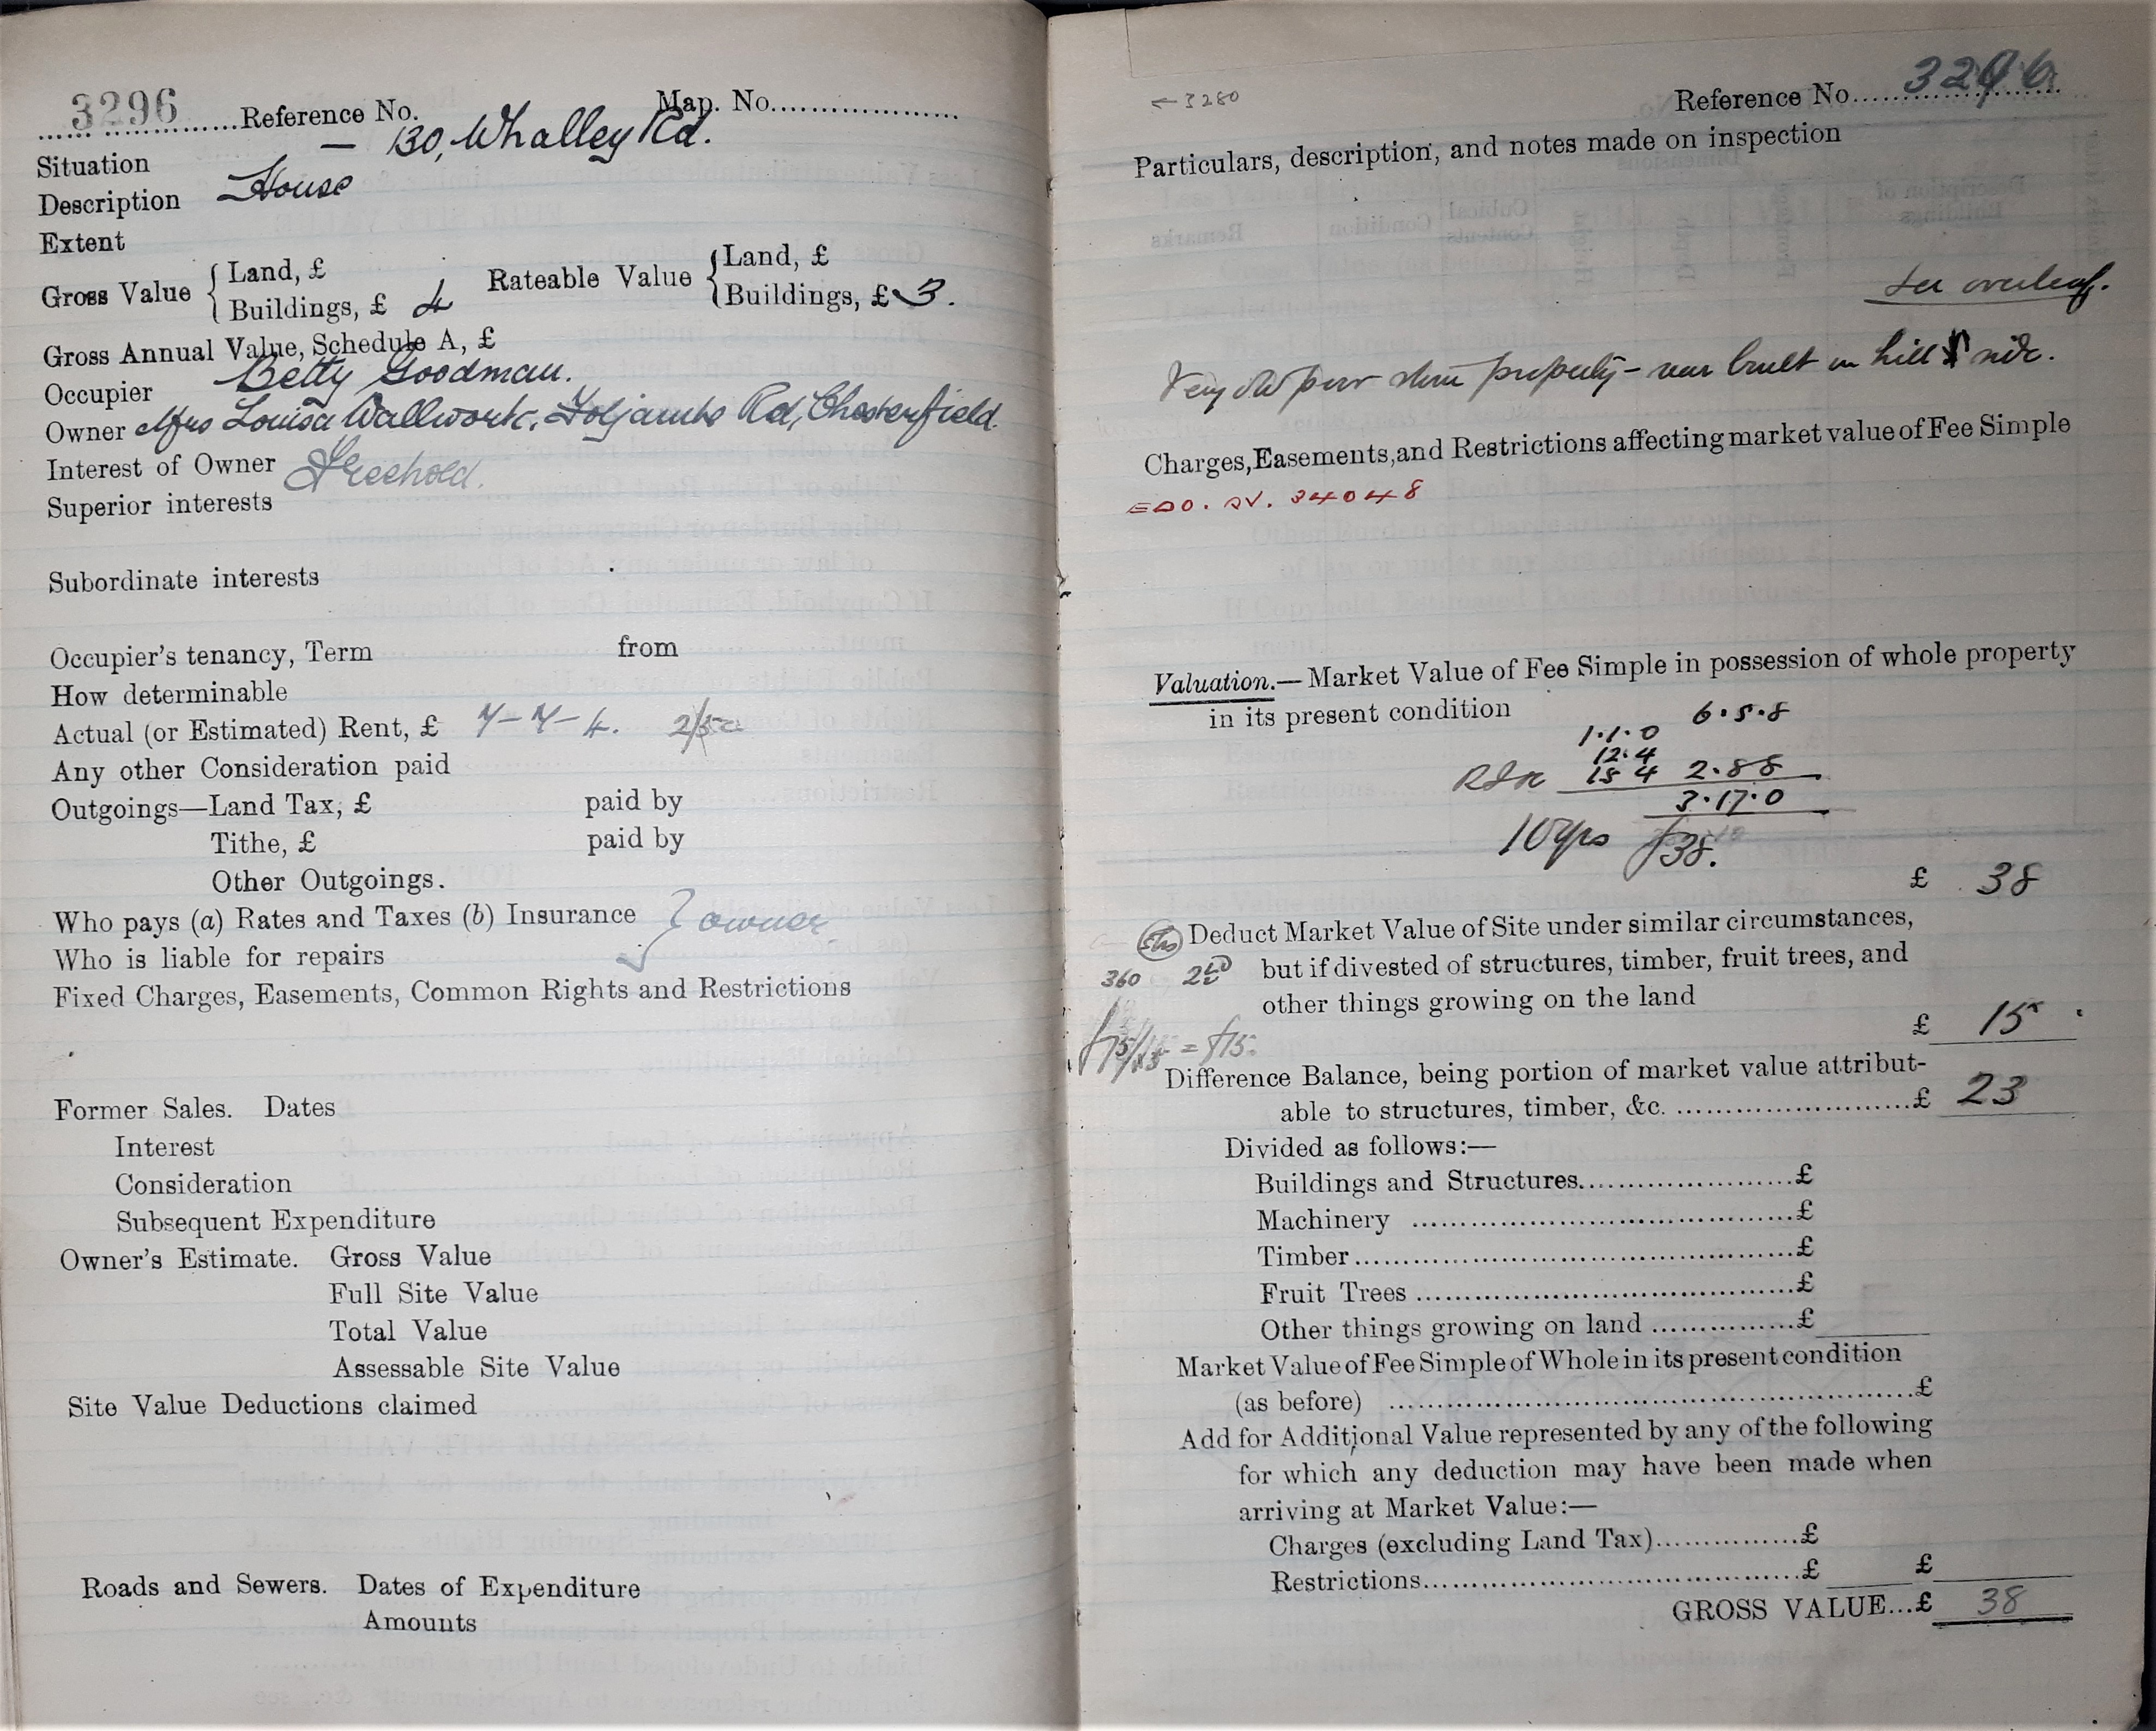 3296 Reference No. Map. No.
Situation — 130, Whalley Rd.
Description House
Extent
Gross Value { Land, £ Rateable Value { Land, £
Buildings, £ 4 Buildings, £ 3.
Gross Annual Value, Schedule A, £
Occupier Betty Goodman.
Owner Mrs Louisa Wallwork, Foljambe Rd, Chesterfield.
Interest of Owner Freehold.
Superior interests
Subordinate interests
Occupier's tenancy, Term from
How determinable
Actual (or Estimated) Rent, £ 7-7-4.
Any other Consideration paid
Outgoings—Land Tax, £ paid by
Tithe, £ paid by
Other Outgoings.
Who pays (a) Rates and Taxes (b) Insurance } owner
Who is liable for repairs
Fixed Charges, Easements, Common Rights and Restrictions
Former Sales. Dates
Interest
Consideration
Subsequent Expenditure
Owner's Estimate. Gross Value
Full Site Value
Total Value
Assessable Site Value
Site Value Deductions claimed
Roads and Sewers. Dates of Expenditure
Amounts
← 3280
Reference No. 3296
Particulars, description, and notes made on inspection
see overleaf.
Very old poor stone property – rear built in hill side.
Charges, Easements, and Restrictions affecting market value of Fee Simple
EDO. SV. 34048
Valuation.— Market Value of Fee Simple in possession of whole property
in its present condition 6.5.8
1.1.0
12.4
15 4 2.8.8
3.17.0
10 yrs £38.
£ 38
Deduct Market Value of Site under similar circumstances,
360 but if divested of structures, timber, fruit trees, and
other things growing on the land
£ 15
= £15.
Difference Balance, being portion of market value attribut-
able to structures, timber, &c. £ 23
Divided as follows:—
Buildings and Structures £
Machinery £
Timber £
Fruit Trees £
Other things growing on land £
Market Value of Fee Simple of Whole in its present condition
(as before) £
Add for Additional Value represented by any of the following
for which any deduction may have been made when
arriving at Market Value:—
Charges (excluding Land Tax) £
Restrictions £ £
GROSS VALUE...£ 38